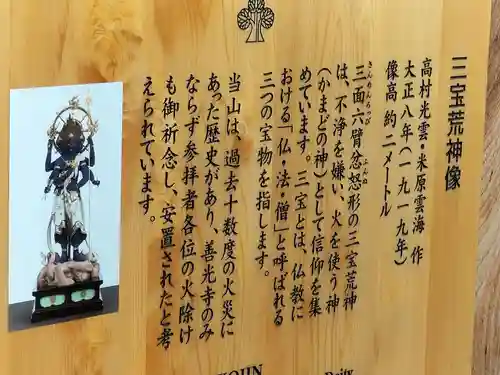 三宝荒神像
高村光雲・米原雲海 作
大正八年(一九一九年)
像高 約二メートル
さんめんろっぴ ふんぬ
三面六臂忿怒形の三宝荒神
は、不浄を嫌い、火を使う神
(かまどの神)として信仰を集
めています。三宝とは、仏教に
おける「仏・法・僧」と呼ばれる
三つの宝物を指します。
当山は、過去十数度の火災に
あった歴史があり、善光寺のみ
ならず参拝者各位の火除け
も御祈念し、安置されたと考
えられています。
Deity